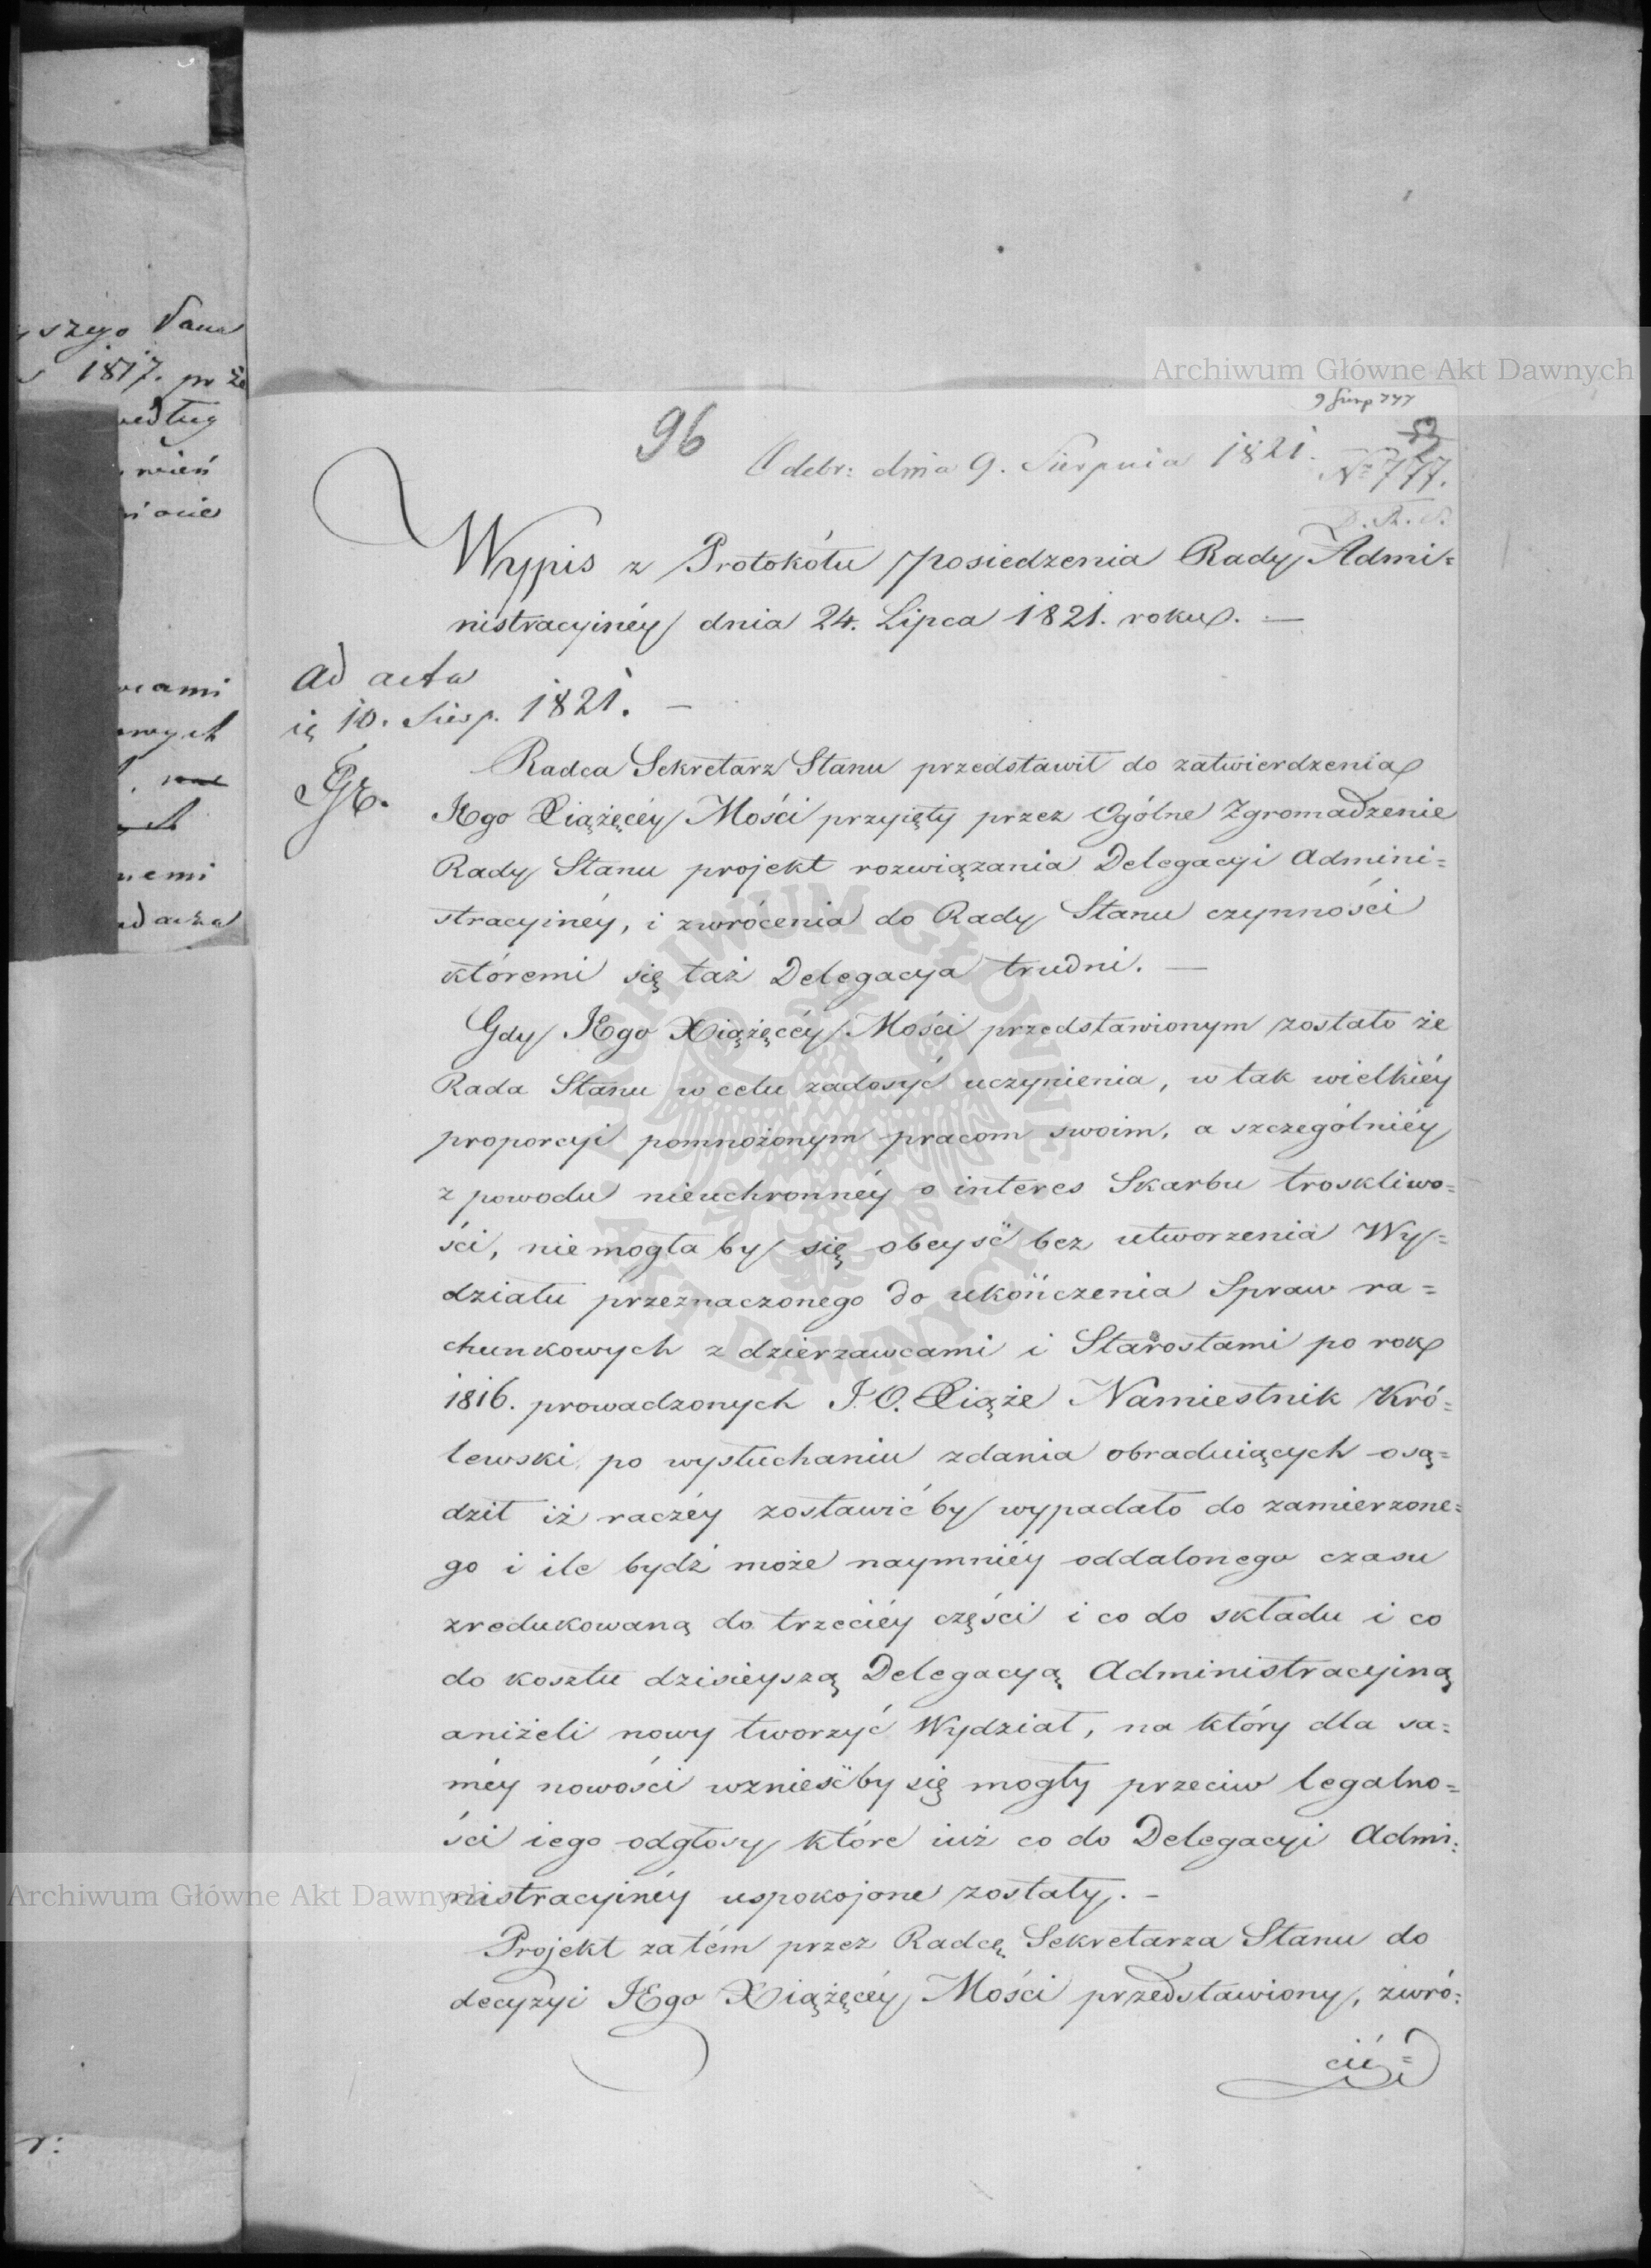 yszego Pana
1817. prze
wedłuą
wień
wcami
owych
nemi
Archiwum Główne Akt Dawnych
9 Sierp 777
96
Odebr: dnia 9. Sierpnia 1821.
52
No 777.
D. R. S.
Wypis z Protokółu posiedzenia Rady Admi=
nistracyinéy dnia 24. Lipca 1821. roku. —
Ad acta
10. Sierp. 1821. —
Radca Sekretarz Stanu przedstawił do zatwierdzenia
JEgo Xiążęcéy Mości przyięty przez Ogólne Zgromadzenie
Rady Stanu projekt rozwiązania Delegacyi Admini=
stracyinéy, i zwrócenia do Rady Stanu czynności
któremi się taż Delegacya trudni. —
Gdy JEgo Xiążęcéy Mości przedstawionym zostało że
Rada Stanu w celu zadosyć uczynienia, w tak wielkiéy
proporcyi pomnożonym pracom swoim, a szczególniéy
z powodu nieuchronnéy o interes Skarbu troskliwo=
ści, niemogła by się obeyść bez utworzenia Wy=
działu przeznaczonego do ukończenia Spraw ra=
chunkowych z dzierzawcami i Starostami po rok
1816. prowadzonych J. O. Xiąże Namiestnik Kró=
lewski po wysłuchaniu zdania obraduiących osą=
dził iż raczéy zostawić by wypadało do zamierzone=
go i ile bydź może naymniéy oddalonego czasu
zredukowaną do trzeciéy części i co do składu i co
do kosztu dzisieyszą Delegacyą Administracyiną
aniżeli nowy tworzyć Wydział, na który dla sa=
méy nowości wznieśćby się mogły przeciw legalno=
ści iego odgłosy które iuż co do Delegacyi Admi=
nistracyinéy uspokojone zostały. —
Archiwum Główne Akt Dawnych
Projekt zatém przez Radcę Sekretarza Stanu do
decyzyi JEgo Xiążęcéy Mości przedstawiony, zwró=
ARCHIWUM GŁÓWNE AKT DAWNYCH